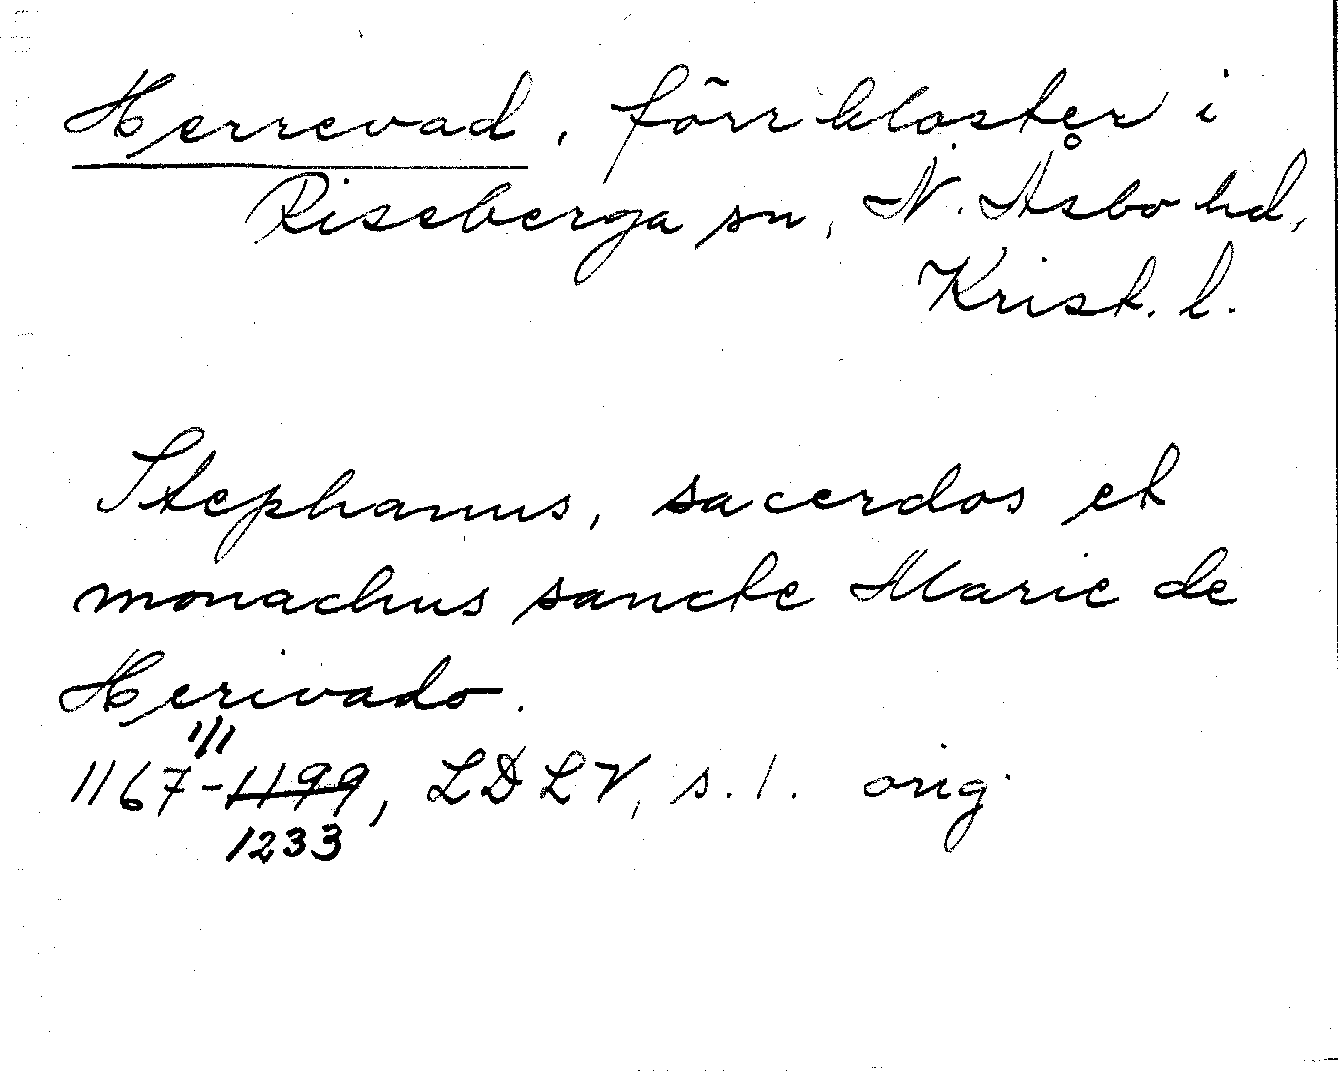 Herrevad, förr kloster i
Riseberga sn, N. Åsbo hd,
Krist. l.
Stephanus, sacerdos et
monachus sancte Marie de
Herivado.
1/1
1167-1199, LDLV, s. 1. orig.
1233